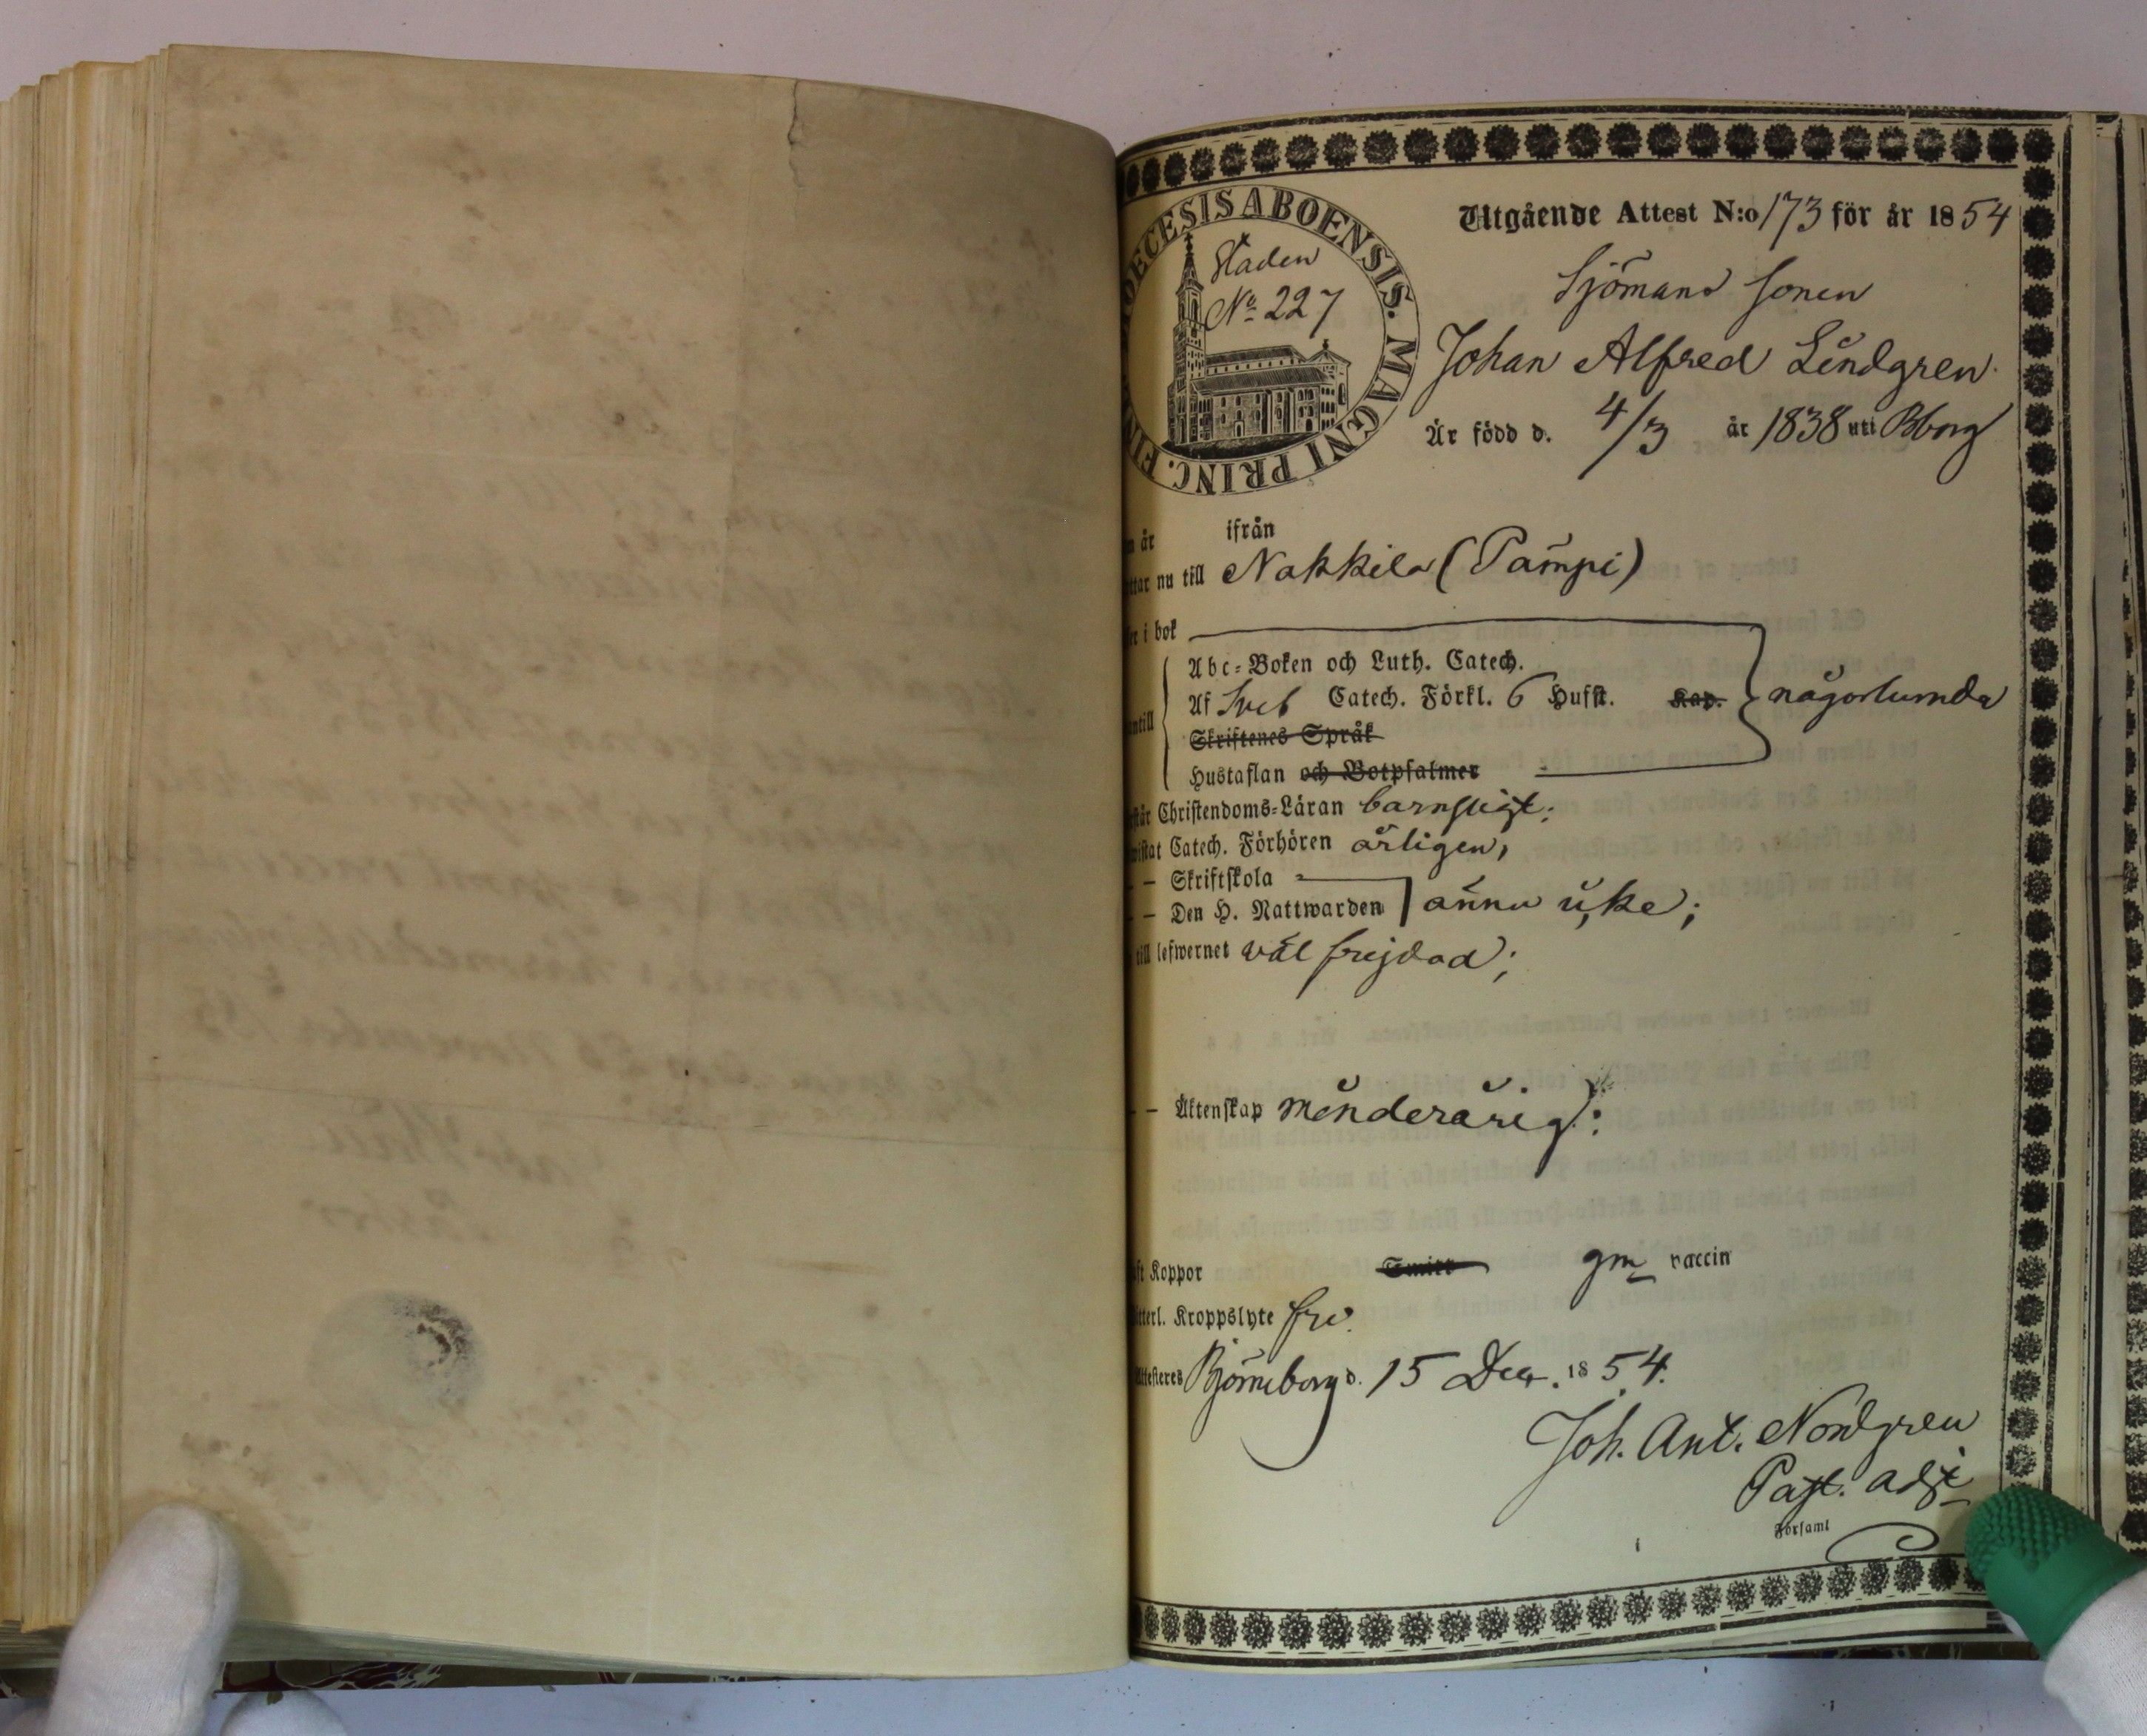 OECESIS ABOENSIS. MAGNI PRINC. FIN
Staden
No 227
Utgående Attest N:o 173 för år 1854
Sjömans sonen
Johan Alfred Lindgren
Är född d. 4/3 år 1838 uti Bborg
är ifrån
ttar nu till Nakkila (Pampi)
er i bok
Abc-Boken och Luth. Catech.
Af Sveb Catech. Förkl. 6 Hufst. Kap. någorlunda
ntill
Skriftenes Språk
Hustaflan och Botpsalmer
står Christendoms-Läran barnsligt;
wistat Catech. Förhören årligen,
— Skriftskola
— Den H. Nattwarden ännu icke;
till lefwernet väl frejdad;
— Äktenskap minderårig:
ft Koppor Smitt gm vaccin
tterl. Kroppslyte fri.
Attesteras Björneborg d. 15 Decr. 1854.
Joh. Ant. Nordgren
Past. adj
Församl